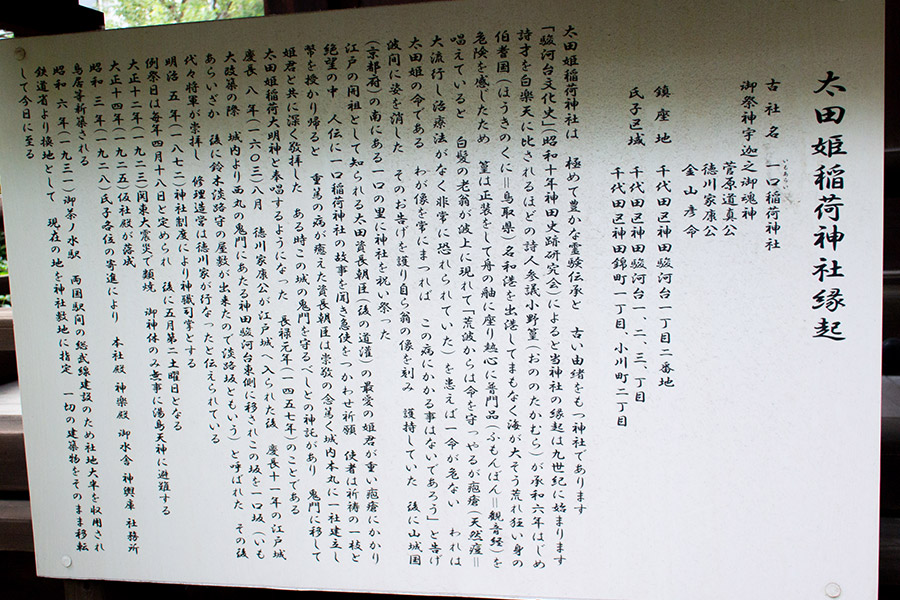 太田姫稲荷神社縁起
古社名　一口稲荷神社
いもあらい
御祭神宇迦之御魂神
菅原道真公
徳川家康公
金山彦命
鎮座地　千代田区神田駿河台一丁目二番地
氏子区域　千代田区神田駿河台一、二、三、丁目
千代田区神田錦町一丁目、小川町二丁目
太田姫稲荷神社は　極めて豊かな霊験伝承と　古い由緒をもつ神社であります
「駿河台文化史」（昭和十年神田史跡研究会）によると当神社の縁起は九世紀に始まります
詩才を白楽天に比されるほどの詩人参議小野篁（おののたかむら）が承和六年はじめ
伯耆国（ほうきのくに＝鳥取県）名和港を出港してまもなく海が大そう荒れ狂い身の
危険を感じたため　篁は正装をして舟の舳に座り熱心に普門品（ふもんぼん＝観音経）を
唱えていると　白髪の老翁が波上に現れて「荒波からは命を守ってやるが疱瘡（天然痘＝
大流行し治療がなく非常に恐れられていた）を患えば一命が危ない　われは
太田姫の命である　わが像を常にまつれば　この病にかかる事はないであろう」と告げ
波間に姿を消した　そのお告げを護り自ら翁の像を刻み　護持していた　後に山城国
（京都府）の南にある一口の里に神社を祝い祭った
江戸の開祖として知られる太田資長朝臣（後の道灌）の最愛の姫君が重い疱瘡にかかり
絶望の中　人伝に一口稲荷神社の故事を聞き急使をつかわせ祈願　使者は祈祷の一枝と
幣を授かり帰ると　重篤の病が癒えた資長朝臣は崇敬の念篤く城内本丸に一社建立し
姫君と共に深く敬拝した　ある時この城の鬼門を守るべしとの神託があり　鬼門に移して
太田姫稲荷大明神と奉唱するようになった　長禄元年（一四五七年）のことである
慶長八年（一六〇三）八月　徳川家康公が江戸城へ入られた後　慶長十一年の江戸城
大改築の際　城内より西丸の鬼門にあたる神田駿河台東側に移されこの坂を一口坂（いも
あらいざか　後に鈴木淡路守の屋敷が出来たので淡路坂ともいう）と呼ばれた　その後
代々将軍が崇拝し　修理造営は徳川家が行なったと伝えられている
明治五年（一八七二）神社制度により神職司掌とする
例祭日は毎年四月十八日と定められ　後に五月第二土曜日となる
大正十二年（一九二三）関東大震災で類焼　御神体のみ無事に湯島天神に避難する
大正十四年（一九二五）仮社殿が落成
昭和三年（一九二八）氏子各位の寄進により　本社殿　神楽殿　御水舎　神輿庫　社務所
鳥居等新築される
昭和六年（一九三一）御茶ノ水駅　両国駅間の総武線建設のため社地大半を収用され
鉄道省より換地として　現在の地を神社敷地に指定　一切の建築物をそのまま移転
して今日に至る